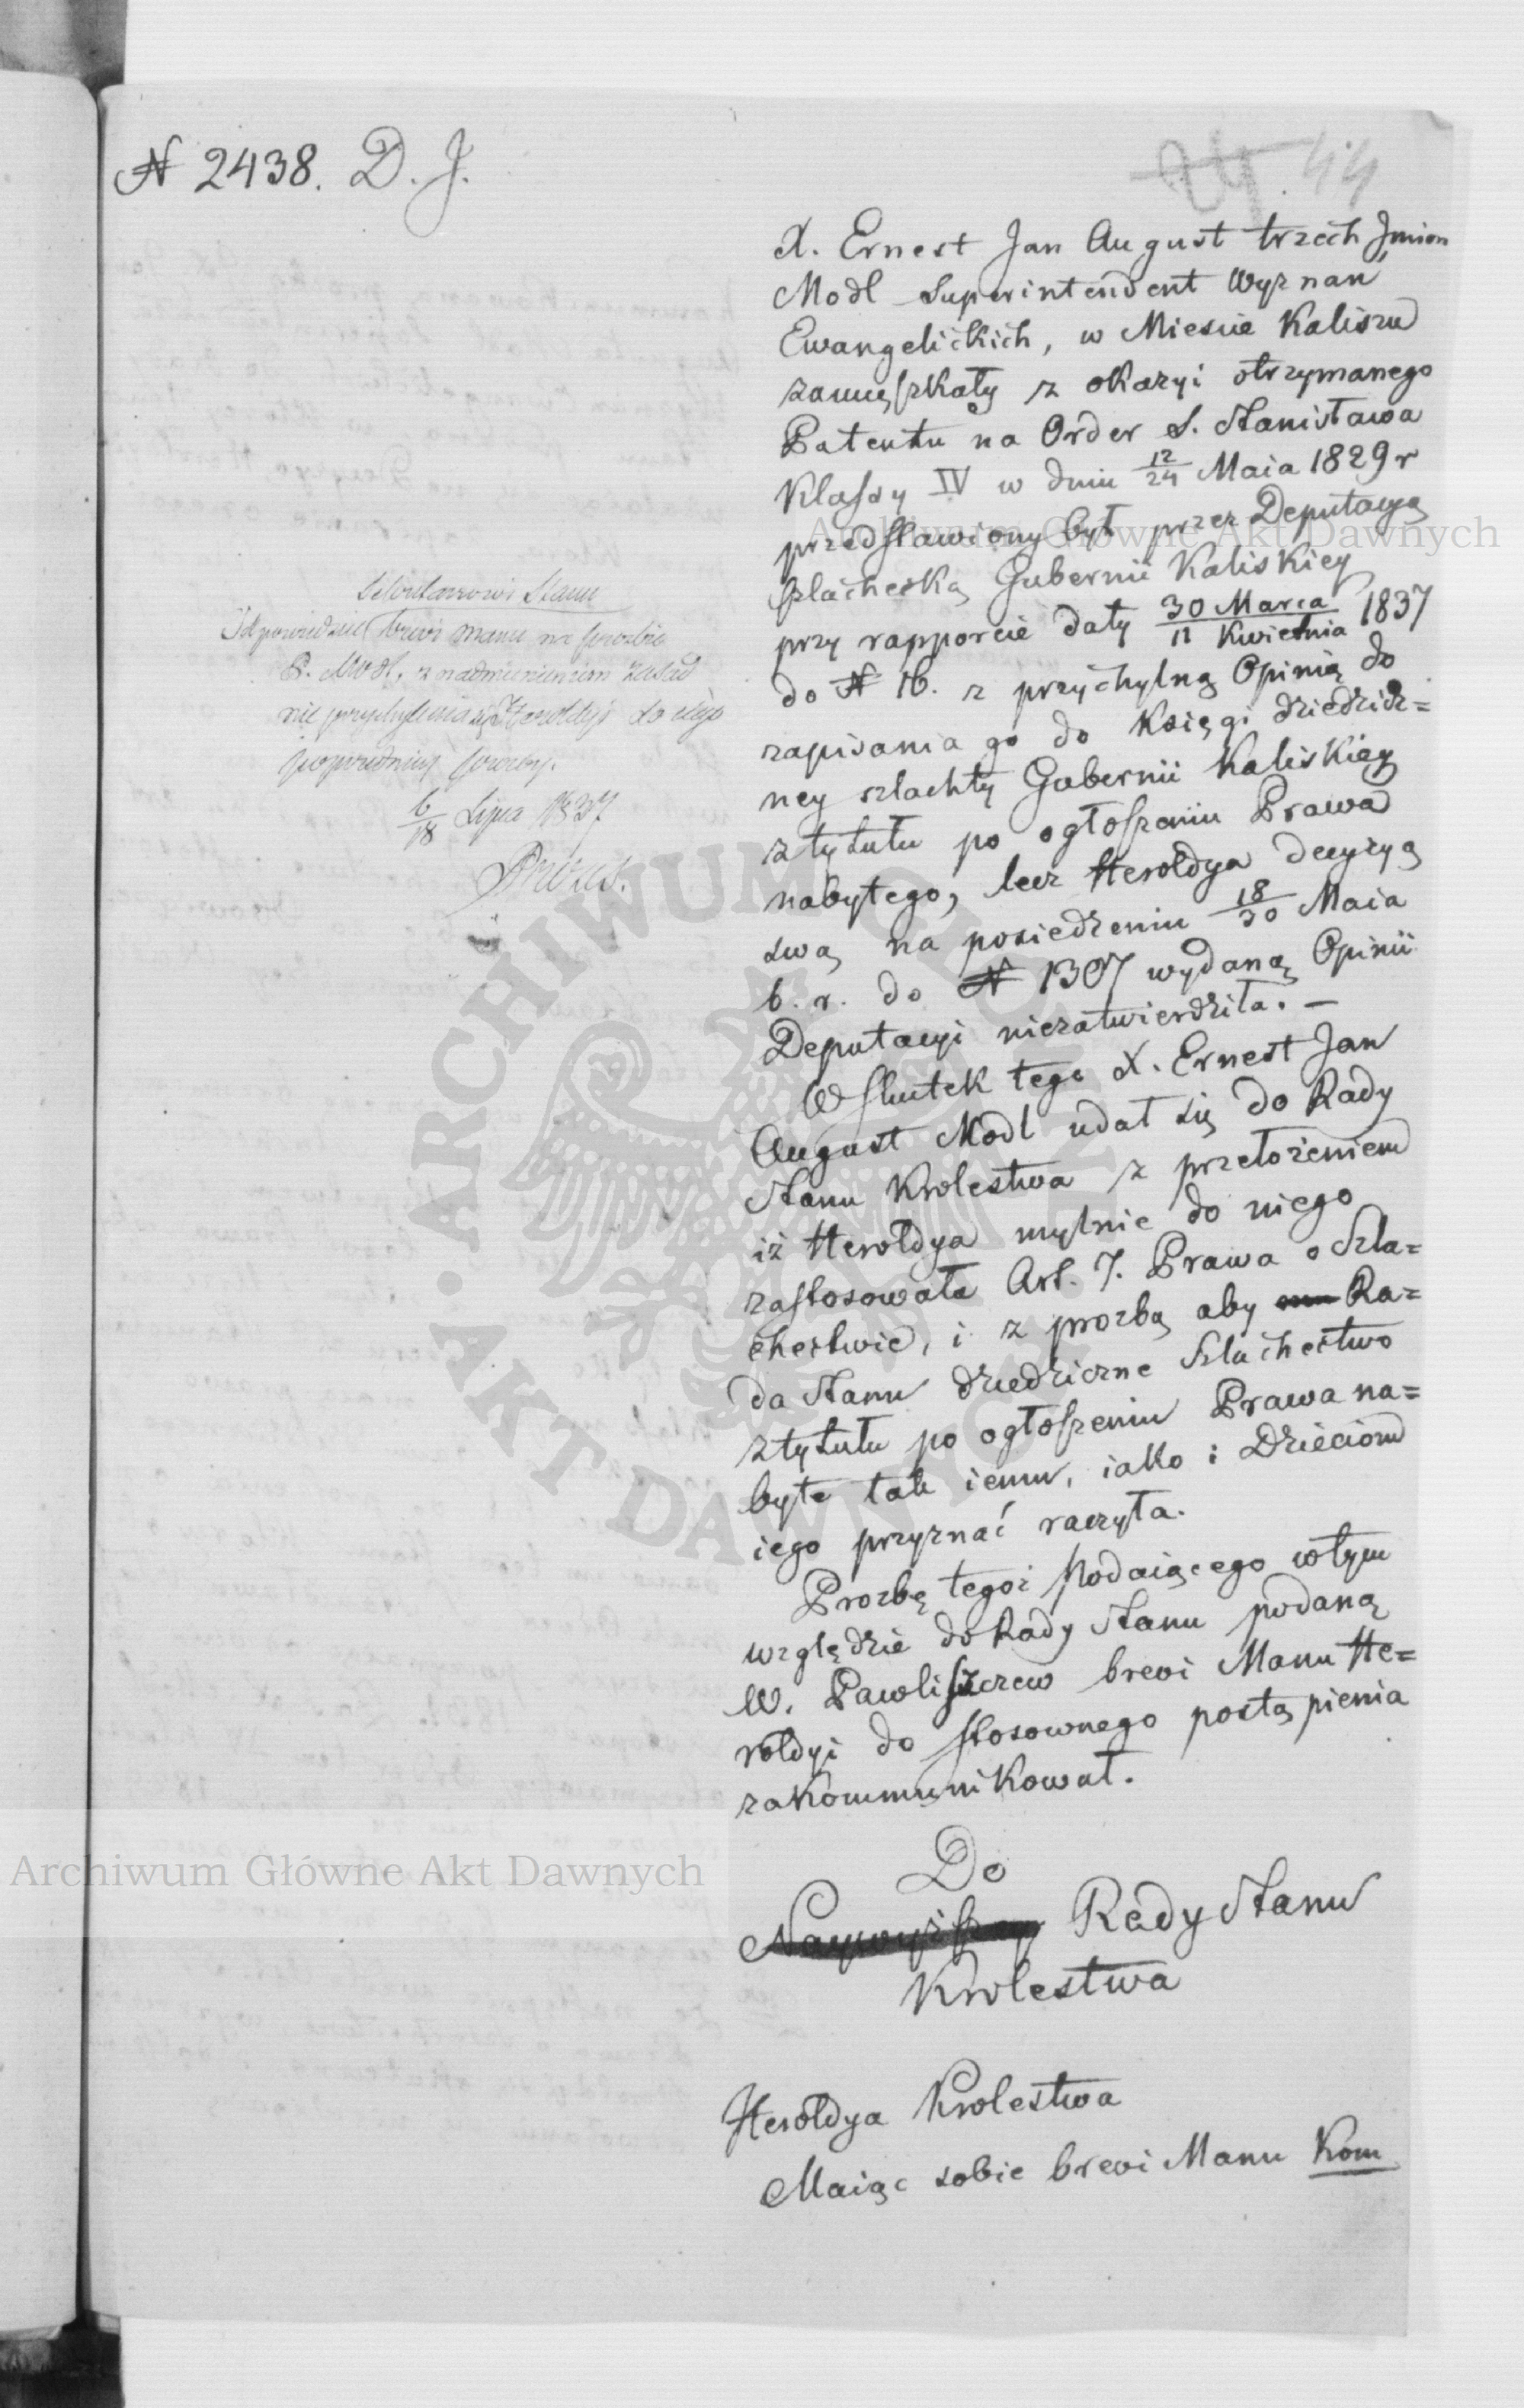 № 2438. D. J.
24 44
X. Ernest Jan August trzech Jmion
Modl Superintendent Wyznań
Ewangelickich, w Mieście Kaliszu
zamięszkały z okazyi otrzymanego
Patentu na Order S. Stanisława
Klassy IV w dniu 12/24 Maia 1829 r
przedstawiony był przez Deputacyą
Szlachecką Gubernii Kaliskiey
przy rapporcie daty 30 Marca/11 Kwietnia 1837
do № 16. z przychylną Opinią do
zapisania go do Księgi dziedzicz=
ney szlachty Gubernii Kaliskiey
z tytułu po ogłoszeniu Prawa
nabytego, lecz Heroldya decyzyą
swą na posiedzeniu 18/30 Maia
b. r. do № 1307 wydaną Opinii
Deputacyi niezatwierdziła. —
W skutek tego X. Ernest Jan
August Modl udał się do Rady
Stanu Krolestwa z przełożeniem
iż Heroldya mylnie do niego
zastosowała Art. 7. Prawa o Szla=
chectwie, i z prozbą aby Ra=
da Stanu dziedziczne Szlachectwo
z tytułu po ogłoszeniu Prawa na=
byte tak iemu, iako i Dzieciom
iego przyznać raczyła.
Prozbę tegoż Podaiącego w tym
względzie do Rady Stanu podaną
W. Pawliszczew brevi Manu He=
roldyi do stosownego postąpienia
zakommunikował.
Do
Naywyższey Rady Stanu
Krolestwa
Heroldya Krolestwa
Maiąc sobie brevi Manu Kom
Sekretarzowi Stanu
Odpowiedzieć brevi manu na prozbie
P. Modl, z nadmienieniem zasad
nie przychylenia się Heroldyi do iego
poprzedniey prozby.
6/18 Lipca 1837
Archiwum Główne Akt Dawnych
Archiwum Główne Akt Dawnych
ARCHIWUM GŁÓWNE AKT DAWNYCH